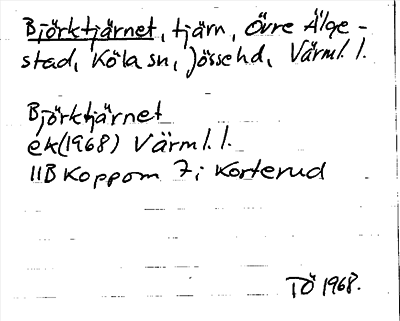 Björktjärnet, tjärn, Övre Älge-
stad, Köla sn, Jössehd, Värml. l.
Björktjärnet
ek(1968) Värml. l.
11B Koppom 7; Korterud
TÖ 1968.